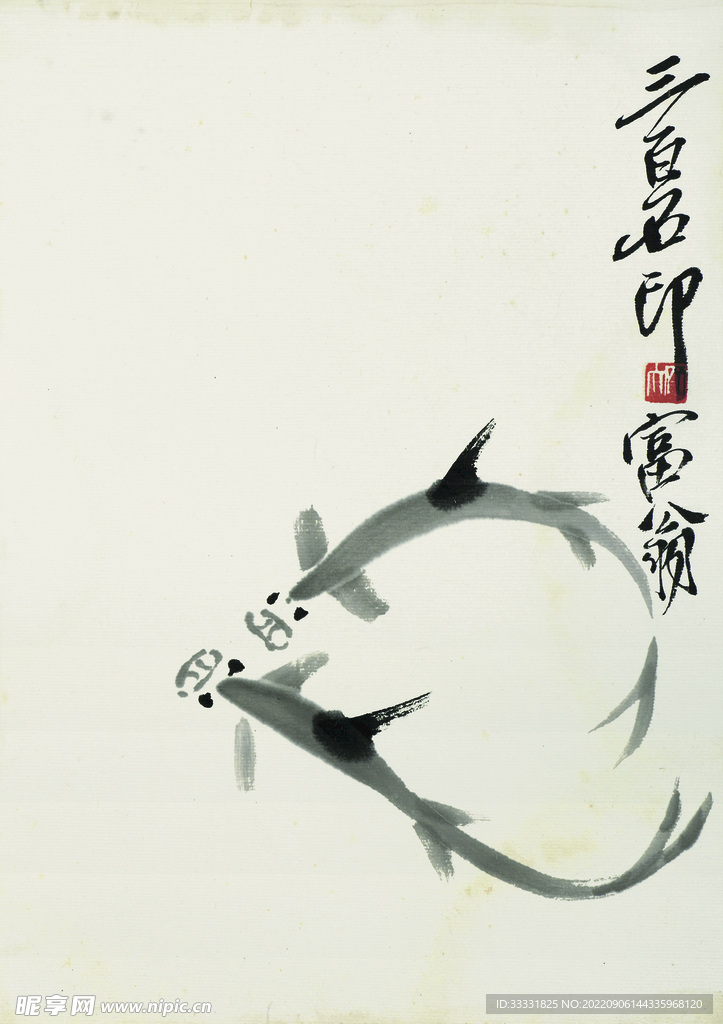 三百石印
富翁
昵享网 www.nipic.cn
ID:33331825 NO:20220906144335968120